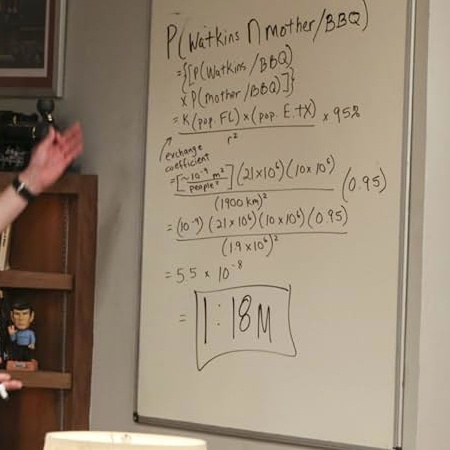 P(Watkins ∩ mother/BBQ)
={[P(Watkins/BBQ)
x P(mother/BBQ)]}
= K(pop. FL) x (pop. E. TX) x 95%
r²
exchange
coefficient
=[~10⁻⁹ m²/people²] (21x10⁶)(10x10⁶) (0.95)
(1900 km)²
= (10⁻⁹)(21x10⁶)(10x10⁶)(0.95)
(1.9 x10⁶)²
= 5.5 x 10⁻⁸
= 1:18M